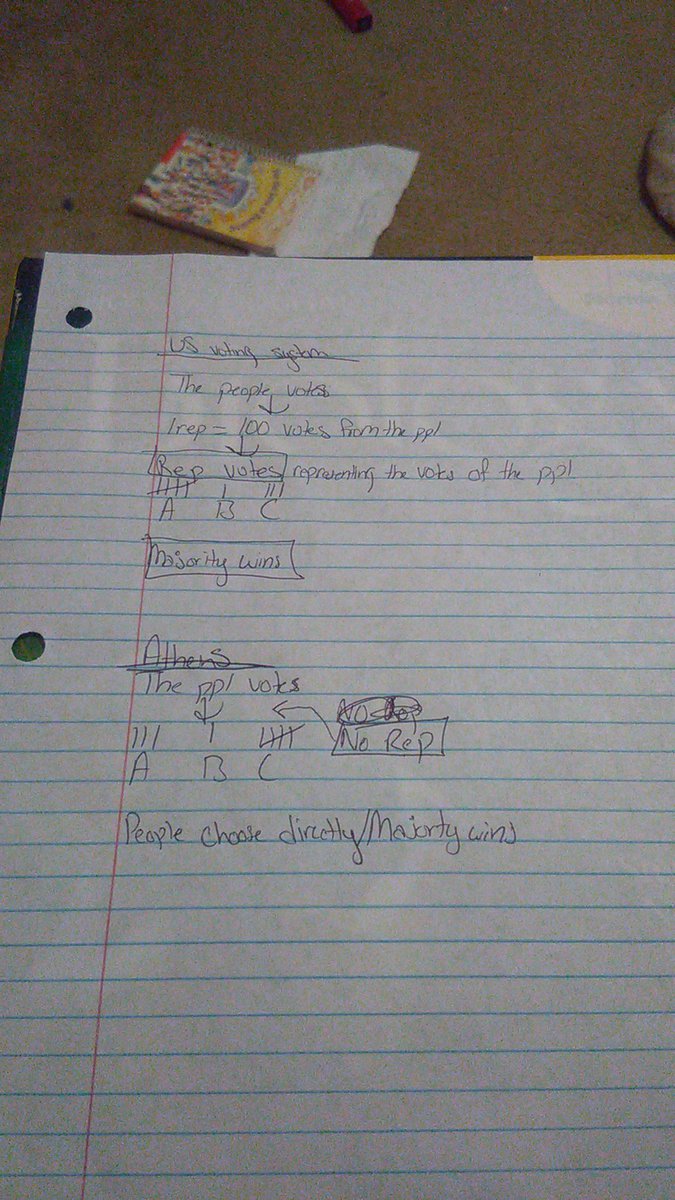 US voting system
The people votes
1 rep = 100 votes from the ppl
Rep votes representing the votes of the ppl
A B C
Majority wins
Athens
The ppl votes
No Rep
A B C
People choose directly/Majorty wins